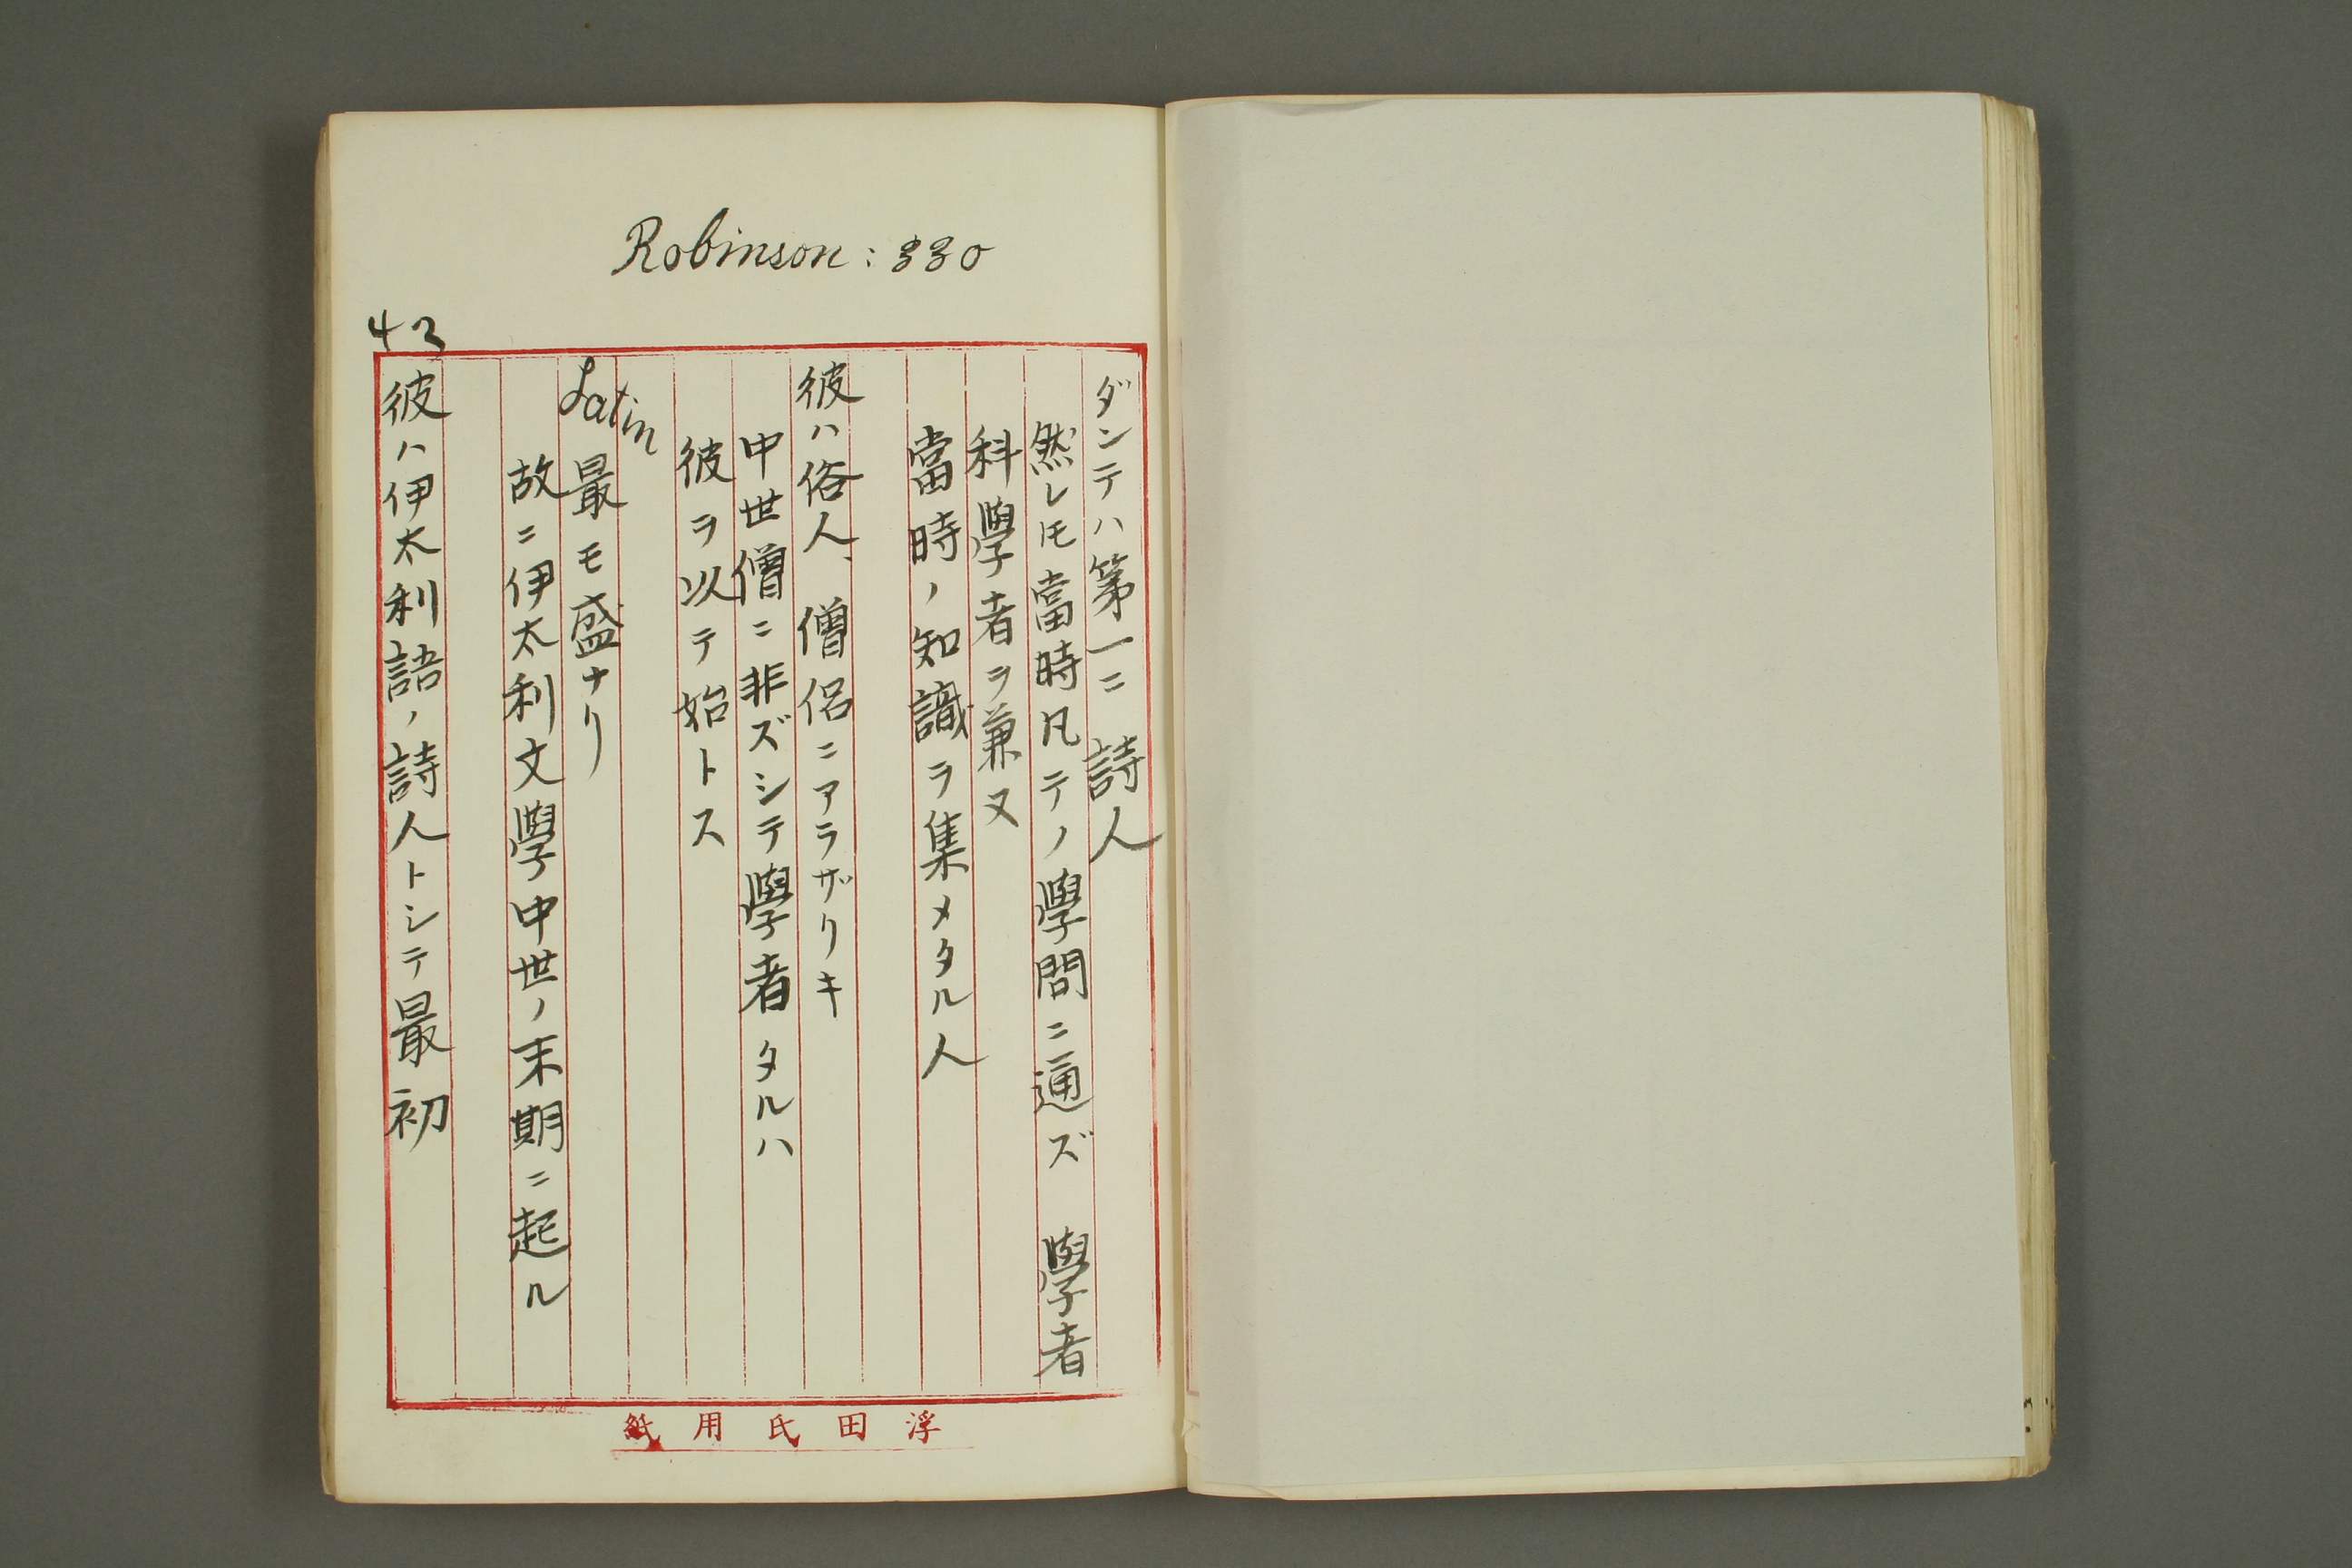 Robinson: 330
ダンテハ第一ニ 詩人
然レ𪜈當時凡テノ學問ニ通ズ 學者
科學者ヲ兼ヌ
當時ノ知識ヲ集メタル人
彼ハ俗人、僧侶ニアラザリキ
中世僧ニ非ズシテ學者タルハ
彼ヲ以テ始トス
Latin 最モ盛ナリ
故ニ伊太利文學中世ノ末期ニ起ル
43
彼ハ伊太利語ノ詩人トシテ最初
浮田氏用紙